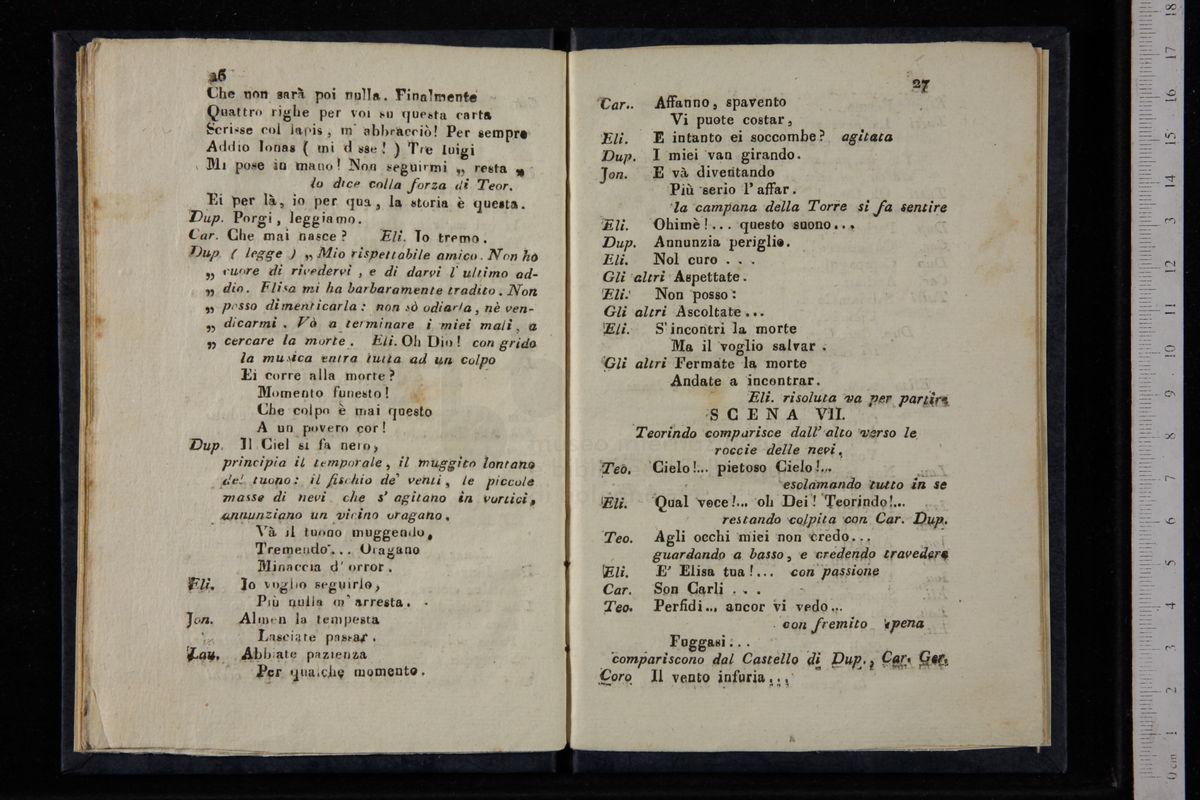 26
Che non sarà poi nulla. Finalmente
Quattro righe per voi su questa carta
Scrisse col lapis, m' abbracciò! Per sempre
Addio Ionas ( mi d sse! ) Tre luigi
Mi pose in mano! Non seguirmi „ resta „
lo dice colla forza di Teor.
Ei per là, io per qua, la storia è questa.
Dup. Porgi, leggiamo.
Car. Che mai nasce? Eli. Io tremo.
Dup. ( legge ) „ Mio rispettabile amico. Non ho
„ cuore di rivedervi, e di darvi l' ultimo ad-
„ dio. Elisa mi ha barbaramente tradito. Non
„ posso dimenticarla: non sò odiarla, nè ven-
„ dicarmi. Vò a terminare i miei mali, a
„ cercare la morte. Eli. Oh Dio! con grido
la musica entra tutta ad un colpo
Ei corre alla morte?
Momento funesto!
Che colpo è mai questo
A un povero cor!
Dup. Il Ciel si fa nero,
principia il temporale, il muggito lontano
del tuono: il fischio de' venti, le piccole
masse di nevi che s' agitano in vortici,
annunziano un vicino uragano.
Và il tuono muggendo,
Tremendo... Uragano
Minaccia d' orror.
Eli. Io voglio seguirlo,
Più nulla m' arresta.
Jon. Almen la tempesta
Lasciate passar.
Lau. Abbiate pazienza
Per qualche momento.
27
Car.. Affanno, spavento
Vi puote costar,
Eli. E intanto ei soccombe? agitata
Dup. I miei van girando.
Jon. E và diventando
Più serio l' affar.
la campana della Torre si fa sentire
Eli. Ohimè!... questo suono...
Dup. Annunzia periglio.
Eli. Nol curo . . .
Gli altri Aspettate.
Eli. Non posso:
Gli altri Ascoltate...
Eli. S' incontri la morte
Ma il voglio salvar.
Gli altri Fermate la morte
Andate a incontrar.
Eli. risoluta va per partire
SCENA VII.
Teorindo comparisce dall' alto verso le
roccie delle nevi,
Teo. Cielo!... pietoso Cielo!...
esclamando tutto in se
Eli. Qual voce!... oh Dei! Teorindo!...
restando colpita con Car. Dup.
Teo. Agli occhi miei non credo...
guardando a basso, e credendo travedere
Eli. E' Elisa tua!... con passione
Car. Son Carli . . .
Teo. Perfidi... ancor vi vedo...
con fremito e pena
Fuggasi...
compariscono dal Castello di Dup., Car. Ger.
Coro Il vento infuria...